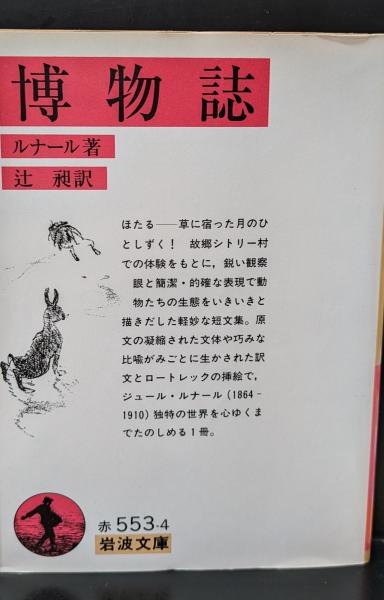 博物誌
ルナール著
辻 昶訳
ほたる――草に宿った月のひ
としずく! 故郷シトリー村
での体験をもとに，鋭い観察
眼と簡潔・的確な表現で動
物たちの生態をいきいきと
描きだした軽妙な短文集。原
文の凝縮された文体や巧みな
比喩がみごとに生かされた訳
文とロートレックの挿絵で，
ジュール・ルナール(1864-
1910)独特の世界を心ゆくま
でたのしめる1冊。
赤 553-4
岩波文庫